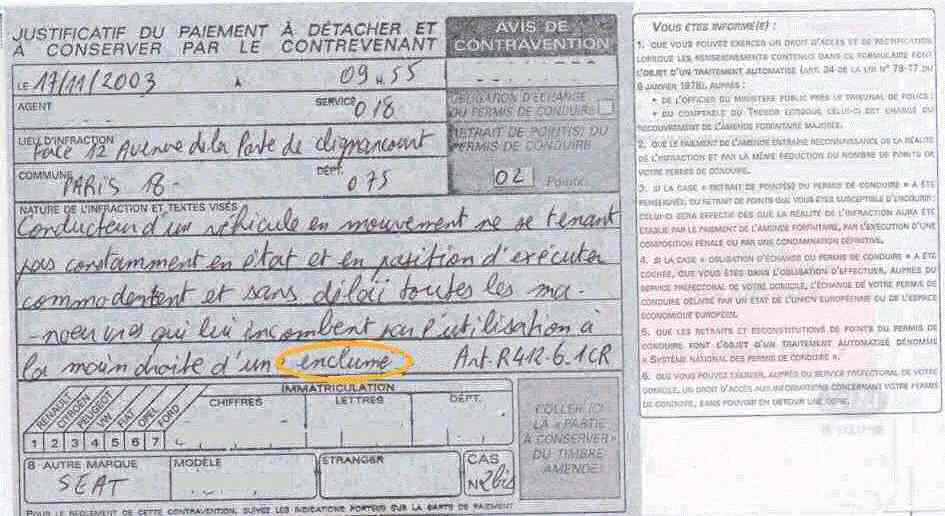 JUSTIFICATIF DU PAIEMENT À DÉTACHER ET
À CONSERVER PAR LE CONTREVENANT
AVIS DE
CONTRAVENTION
LE 17/11/2003 À 09 H 55
AGENT
SERVICE 018
OBLIGATION D'ÉCHANGE
DU PERMIS DE CONDUIRE
LIEU D'INFRACTION
Face 12 Avenue de la Porte de Clignancourt
RETRAIT DE POINT(S) DU
PERMIS DE CONDUIRE
COMMUNE PARIS 18-
DÉPT. 075
02 Points
NATURE DE L'INFRACTION ET TEXTES VISÉS
Conducteur d'un véhicule en mouvement ne se tenant
pas constamment en état et en position d'exécuter
commodentent et sans délai toutes les ma-
-noeuvres qui lui incombent par l'utilisation à
la main droite d'un enclume Art. R412-6.1CR
IMMATRICULATION
RENAULT
CITROËN
PEUGEOT
VW
FIAT
OPEL
FORD
CHIFFRES
LETTRES
DÉPT.
1 2 3 4 5 6 7
COLLER ICI
LA « PARTIE
À CONSERVER »
DU TIMBRE
AMENDE
8 AUTRE MARQUE
SEAT
MODÈLE
ÉTRANGER
CAS
N° 2bis
POUR LE RÈGLEMENT DE CETTE CONTRAVENTION, SUIVEZ LES INDICATIONS PORTÉES SUR LA CARTE DE PAIEMENT
VOUS ÊTES INFORMÉ(E) :
1. QUE VOUS POUVEZ EXERCER UN DROIT D'ACCÈS ET DE RECTIFICATION
LORSQUE LES RENSEIGNEMENTS CONTENUS DANS CE FORMULAIRE FONT
L'OBJET D'UN TRAITEMENT AUTOMATISÉ (ART. 34 DE LA LOI N° 78-17 DU
6 JANVIER 1978), AUPRÈS :
• DE L'OFFICIER DU MINISTÈRE PUBLIC PRÈS LE TRIBUNAL DE POLICE ;
• DU COMPTABLE DU TRÉSOR LORSQUE CELUI-CI EST CHARGÉ DU
RECOUVREMENT DE L'AMENDE FORFAITAIRE MAJORÉE.
2. QUE LE PAIEMENT DE L'AMENDE ENTRAÎNE RECONNAISSANCE DE LA RÉALITÉ
DE L'INFRACTION ET PAR LÀ MÊME RÉDUCTION DU NOMBRE DE POINTS DE
VOTRE PERMIS DE CONDUIRE.
3. SI LA CASE « RETRAIT DE POINT(S) DU PERMIS DE CONDUIRE » A ÉTÉ
RENSEIGNÉE, DU RETRAIT DE POINTS QUE VOUS ÊTES SUSCEPTIBLE D'ENCOURIR :
CELUI-CI SERA EFFECTIF DÈS QUE LA RÉALITÉ DE L'INFRACTION AURA ÉTÉ
ÉTABLIE PAR LE PAIEMENT DE L'AMENDE FORFAITAIRE, PAR L'EXÉCUTION D'UNE
COMPOSITION PÉNALE OU PAR UNE CONDAMNATION DÉFINITIVE.
4. SI LA CASE « OBLIGATION D'ÉCHANGE DU PERMIS DE CONDUIRE » A ÉTÉ
COCHÉE, QUE VOUS ÊTES DANS L'OBLIGATION D'EFFECTUER, AUPRÈS DU
SERVICE PRÉFECTORAL DE VOTRE DOMICILE, L'ÉCHANGE DE VOTRE PERMIS DE
CONDUIRE DÉLIVRÉ PAR UN ÉTAT DE L'UNION EUROPÉENNE OU DE L'ESPACE
ÉCONOMIQUE EUROPÉEN.
5. QUE LES RETRAITS ET RECONSTITUTIONS DE POINTS DU PERMIS DE
CONDUIRE FONT L'OBJET D'UN TRAITEMENT AUTOMATISÉ DÉNOMMÉ
« SYSTÈME NATIONAL DES PERMIS DE CONDUIRE ».
6. QUE VOUS POUVEZ EXERCER, AUPRÈS DU SERVICE PRÉFECTORAL DE VOTRE
DOMICILE, UN DROIT D'ACCÈS AUX INFORMATIONS CONCERNANT VOTRE PERMIS
DE CONDUIRE, SANS POUVOIR EN OBTENIR UNE COPIE.